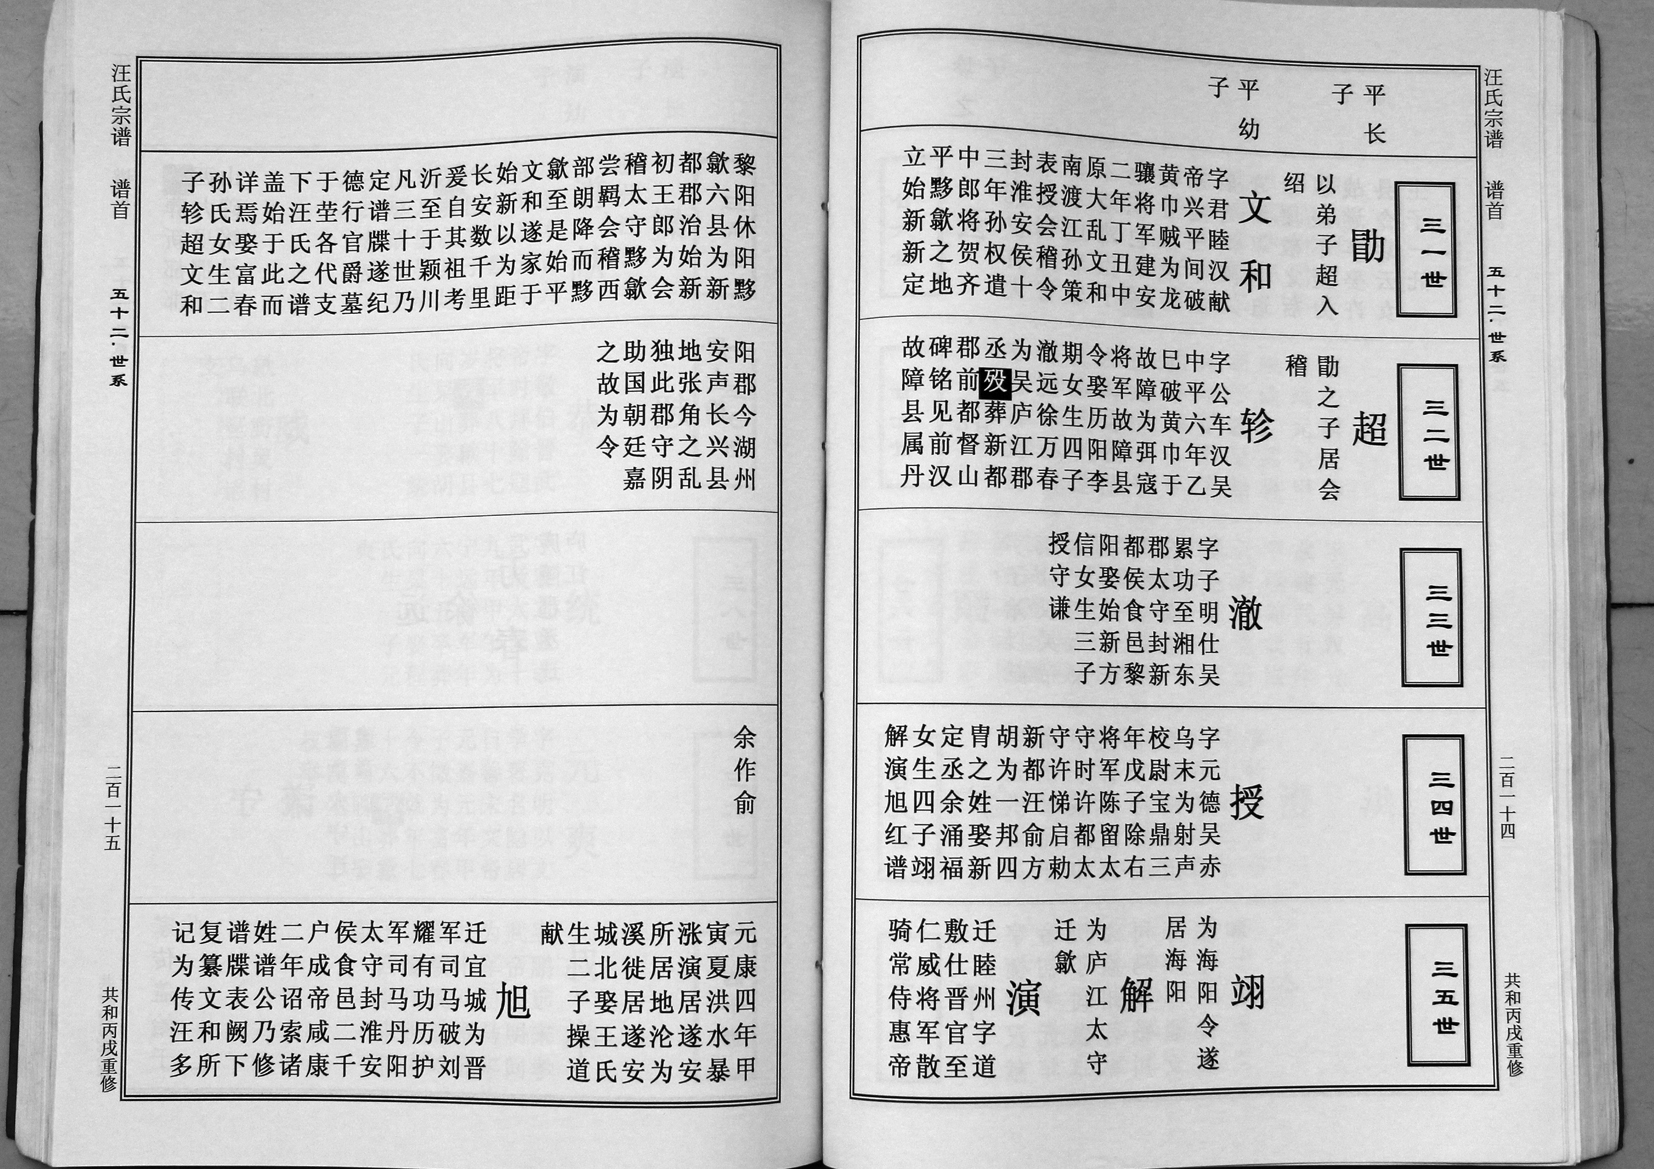 汪氏宗谱 谱首 五十二·世系 二百一十四 共和丙戌重修
平长
子
平幼
子
三一世
勖
以弟子超入
绍
文和
字君睦汉献
帝兴平间破
黄巾贼为龙
骧将军建安
二年丁丑中
原大乱文和
南渡江孙策
表授会稽令
封淮安侯十
三年孙权遣
中郎将贺齐
平黟歙之地
立始新新定
三二世
超
勖之子居会
稽
轸
字公车汉吴
中平六年乙
巳破黄巾于
故障为弭寇
将军故障县
令娶历阳李
期女生四子
澈远徐万春
为吴庐江郡
丞殁葬新都
郡前都督山
碑铭见前汉
故障县属丹
三三世
澈
字子明仕吴
累功至湘东
郡太守封新
都侯食邑黎
阳娶始新方
信女生三子
授守谦
三四世
授
字元德吴赤
乌末为射声
校尉宝鼎三
年戊子除右
将军陈留太
守时许都太
守许悌启勅
新都汪俞方
胡为一邦四
胄之姓娶新
定丞余涌福
女生四子翊
解演旭红谱
三五世
翊
为海阳令遂
居海阳
解
为庐江太守
迁歙
演
迁睦州字道
敷仕晋官至
仁威将军散
骑常侍惠帝
黎阳休阳黟
歙六县为新
都郡治始新
初王郎为会
稽太守黟歙
尝羁会稽西
部朗降而黟
歙至是始平
文和遂家于
始新以为距
长安数千里
爰自其祖考
沂至于颍川
凡三十世乃
定谱牒遂纪
德行官爵墓
于茔各代支
下汪氏之谱
盖始于此而
详焉娶富春
孙氏女生二
子轸超文和
阳郡今湖州
安声长兴县
地张角之乱
独此郡守阴
助国朝廷嘉
之故为令
余作俞
元康四年甲
寅夏洪水暴
涨演居遂安
所居地沦为
溪徙居遂安
城北娶王氏
生二子操道
献
旭
迁宜城为晋
军司马破刘
耀有功历护
军司马丹阳
太守封淮安
侯食邑二千
户成帝咸康
二年诏索诸
姓谱公乃修
谱牒表阙下
复纂文和所
记为传汪多
汪氏宗谱 谱首 五十二·世系 二百一十五 共和丙戌重修